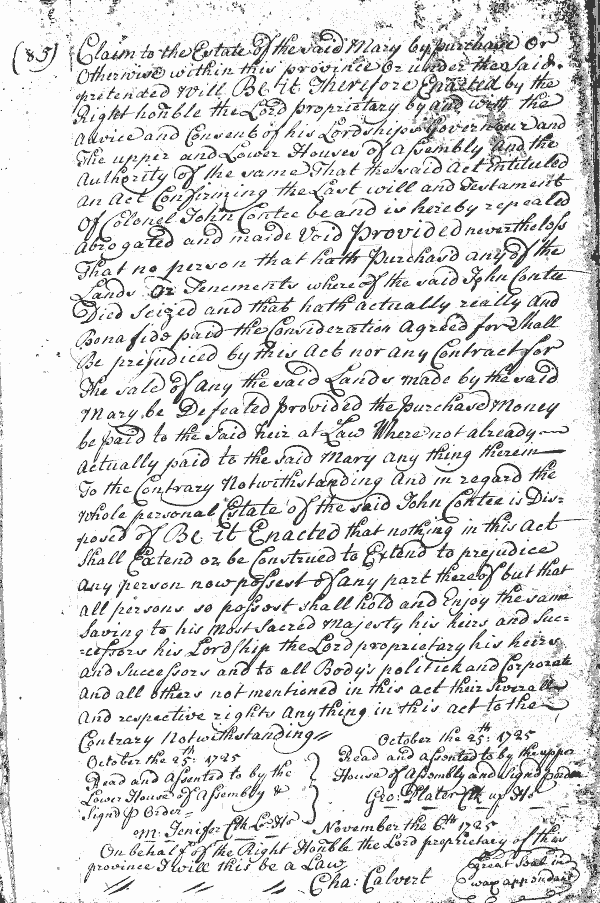 (85)
Claim to the Estate of the said Mary by purchase Or
Otherwise within this province Or under the said
pretended Will Be it Therefore Enacted by the
Right honble the Lord proprietary by and with the
advice and Consent of his Lordships Governour and
The upper and Lower Houses of assembly and the
Authority of the same That the said Act Entituled
an Act Confirming the Last will and Testament
Of Colonel John Contee be and is hereby repealed
abrogated and made Void Provided nevertheless
That no person that hath Purchasd any of the
Lands Or Tenements whereof the said John Contee
Died Seized and that hath actually really And
Bonafide paid the Consideration Agreed for Shall
Be prejudiced by this Act nor any Contract for
The sale of any the said Lands made by the said
Mary be Defeated provided the purchase Money
be paid to the said heir at Law Where not already
actually paid to the said Mary any thing therein
To the Contrary Notwithstanding And in regard the
whole personal Estate of the said John Contee is Dis=
posed of Be it Enacted that nothing in this Act
Shall Extend or be Construed to Extend to prejudice
any person now possest of any part thereof but that
all persons so possest shall hold and Enjoy the same
Saving to his most Sacred Majesty his heirs and Suc=
=cessors his Lordship the Lord proprietary his heirs
and Successors and to all Body's politick and Corporate
and all others not mentioned in this act their Severall
and respective rights Anything in this act to the
Contrary Notwithstanding //
October the 25th: 1725
Read and Assented to by the
Lower House of Assembly &
Signd p Order
M: Jenifer Clk Lo: Hs
October the 25:th 1725
Read and assented to by the upper
House of Assembly and signd p order
Geo: Plater Clk up Hs
November the 6th 1725
On behalf of the Right Honble the Lord proprietary of this
province I will this be a Law
Cha: Calvert
Great Seal in
wax appendant